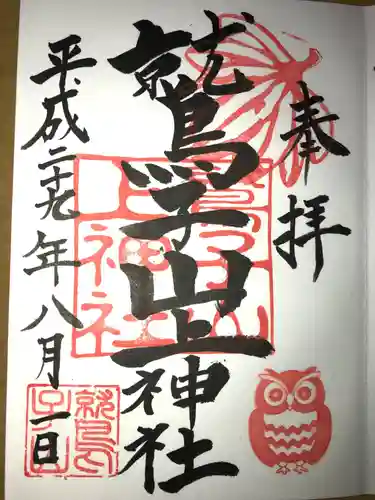 奉拝
鷲子山上神社
平成二十九年八月一日
鷲子山上神社